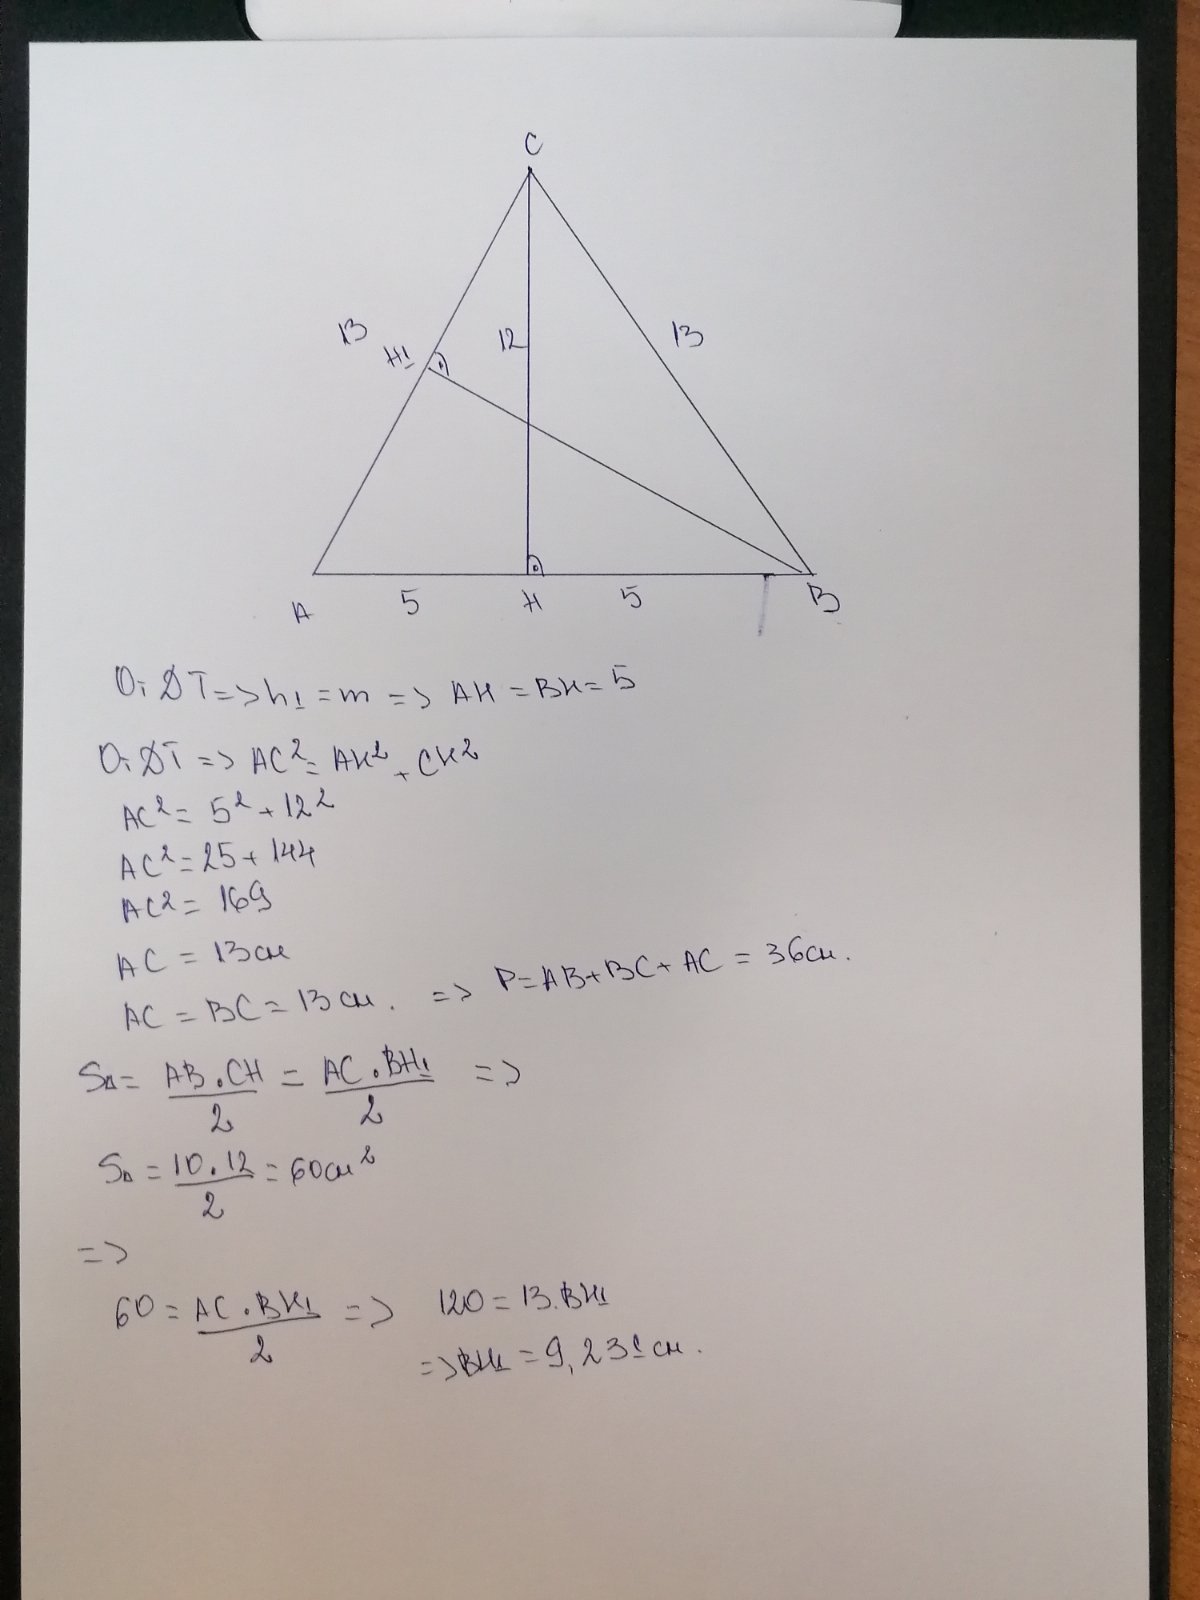 C
13
H1
12
13
A
5
H
5
B
От ΔT => h1 = m => AH = BH = 5
От ΔT => AC² = AH² + CH²
AC² = 5² + 12²
AC² = 25 + 144
AC² = 169
AC = 13 см
AC = BC = 13 см. => P = AB + BC + AC = 36 см.
SΔ = AB . CH / 2 = AC . BH1 / 2 =>
SΔ = 10 . 12 / 2 = 60 см²
=>
60 = AC . BH1 / 2 => 120 = 13 . BH1
=> BH1 = 9,231 см.